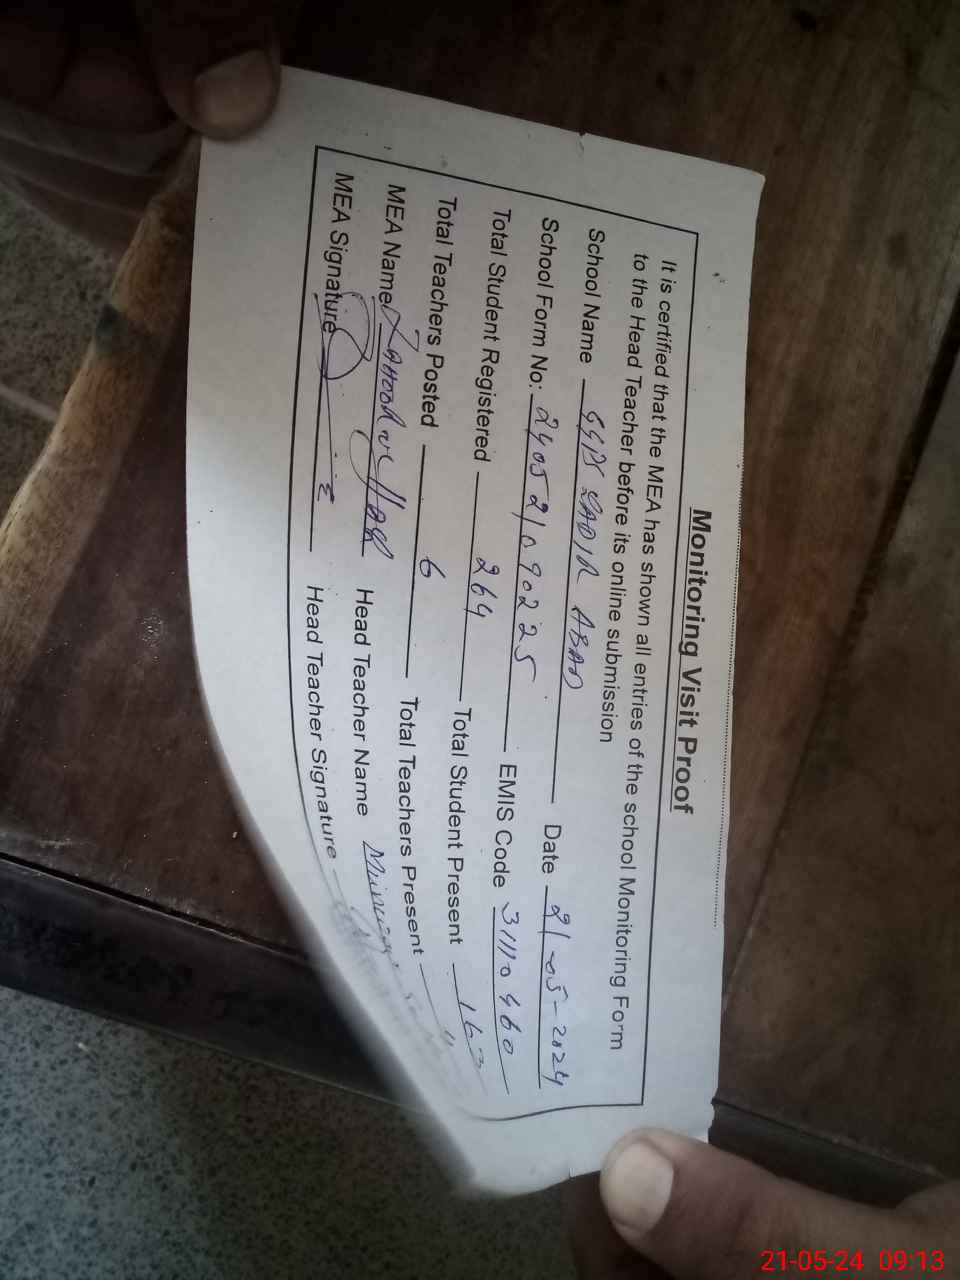 Monitoring Visit Proof
It is certified that the MEA has shown all entries of the school Monitoring Form
to the Head Teacher before its online submission
School Name GGPS QADIR ABAD Date 21-05-2024
School Form No: 240521090225 EMIS Code 31110460
Total Student Registered 264 Total Student Present 163
Total Teachers Posted 6 Total Teachers Present
MEA Name Head Teacher Name
MEA Signature Head Teacher Signature
21-05-24 09:13